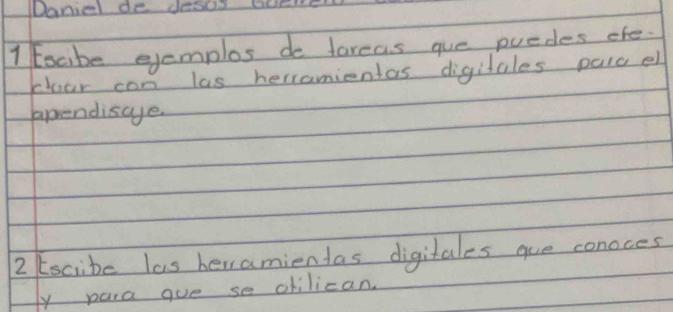 Daniel de Jesus
1 Escibe ejemplos de tareas que puedes efe-
ctuar con las herramientas digitales para el
apendisaje.
2 Escibe las herramientas digitales que conoces
y para que se otilican.